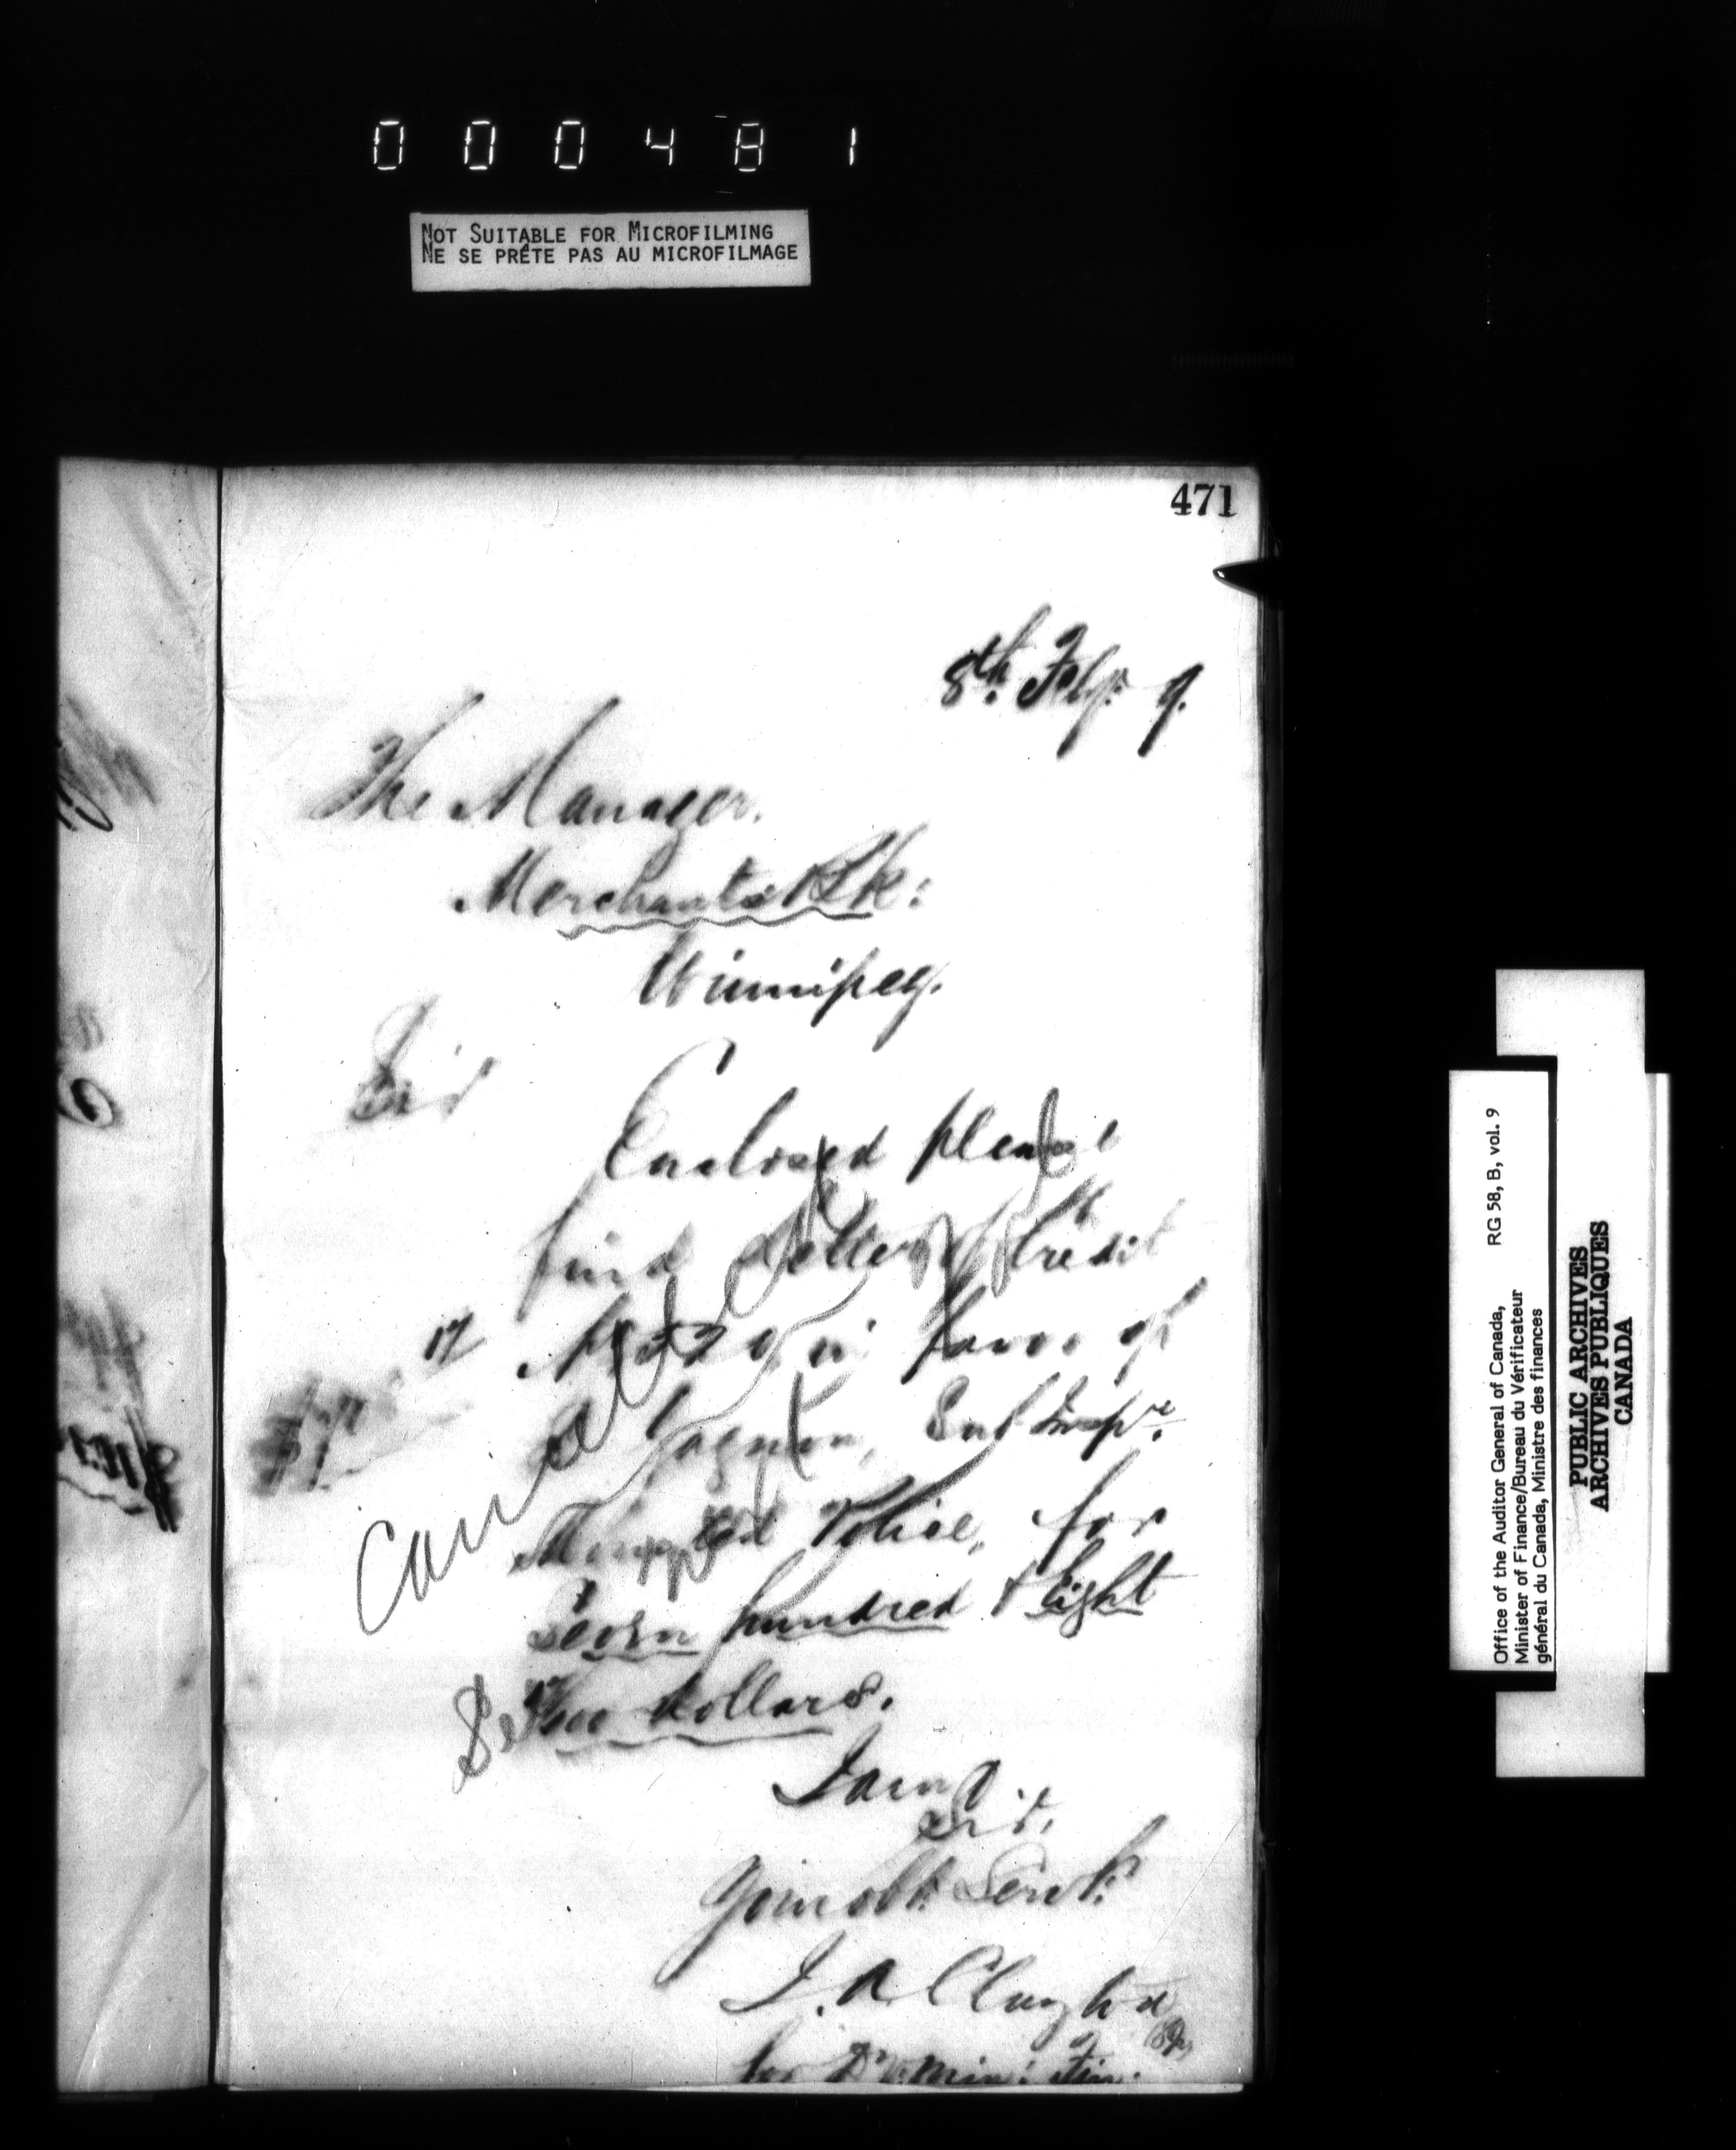 000481
NOT SUITABLE FOR MICROFILMING
NE SE PRÊTE PAS AU MICROFILMAGE
471
8th Feby 9.
The Manager.
Merchants Bk:
Winnipeg.
Sir
Enclosed please
find Letter of Credit
17 in favor of
Gagnon, Sub Inspr.
Mounted Police, for
Seven hundred & Eight
Two dollars.
Cancelled
I am
Sir,
Your obt. Servt.
J. A.
for Dy. Min: Fin:
Office of the Auditor General of Canada, RG 58, B, vol. 9
Minister of Finance/Bureau du Vérificateur
général du Canada, Ministre des finances
PUBLIC ARCHIVES
ARCHIVES PUBLIQUES
CANADA